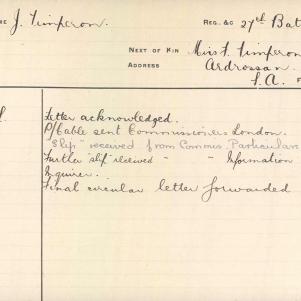 J. Timperon.
REG. &C 27th Bat
NEXT OF KIN Miss F. Timperon
ADDRESS Ardrossan
S.A.
Letter acknowledged.
P/Cable sent Commissioners London.
"Slip" received from Commis. Particulars
Further "slip" received " " Information
Inquirer.
Final circular letter forwarded